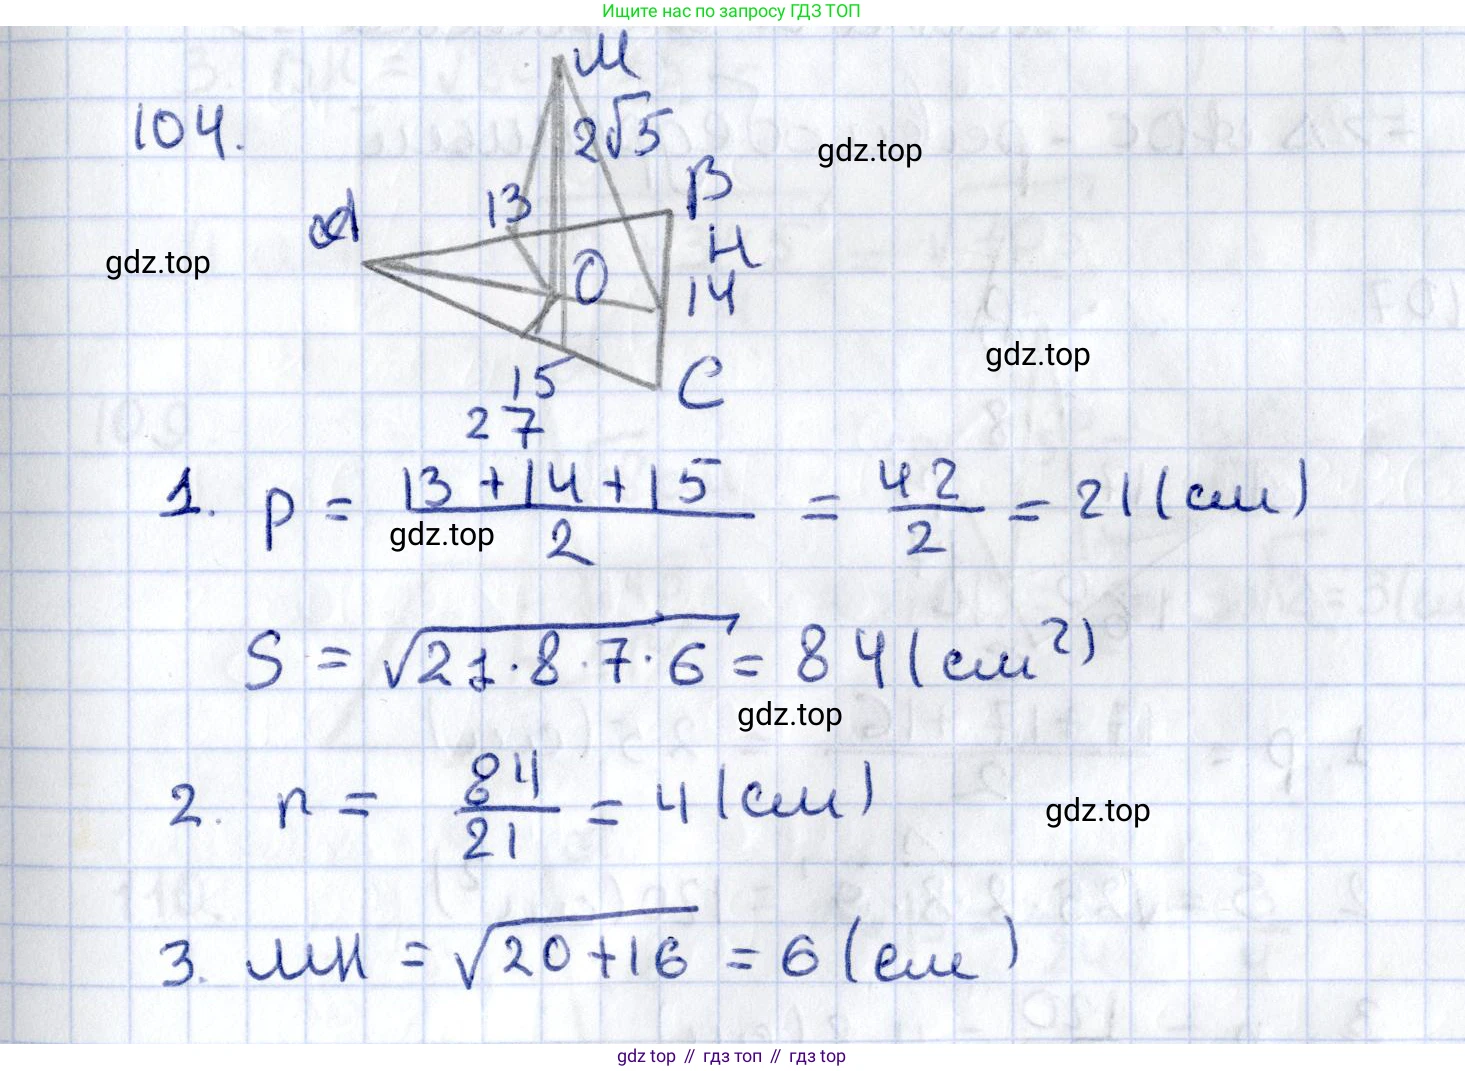 Ищите нас по запросу ГДЗ ТОП
104.
M
2√5
gdz.top
B
13
A
H
gdz.top
O
14
gdz.top
15
C
27
1. p = (13 + 14 + 15) / 2 = 42 / 2 = 21 (см)
gdz.top
S = √21·8·7·6 = 84 (см²)
gdz.top
2. r = 84 / 21 = 4 (см)
gdz.top
3. MH = √20+16 = 6 (см)
gdz top // гдз топ // гдз top